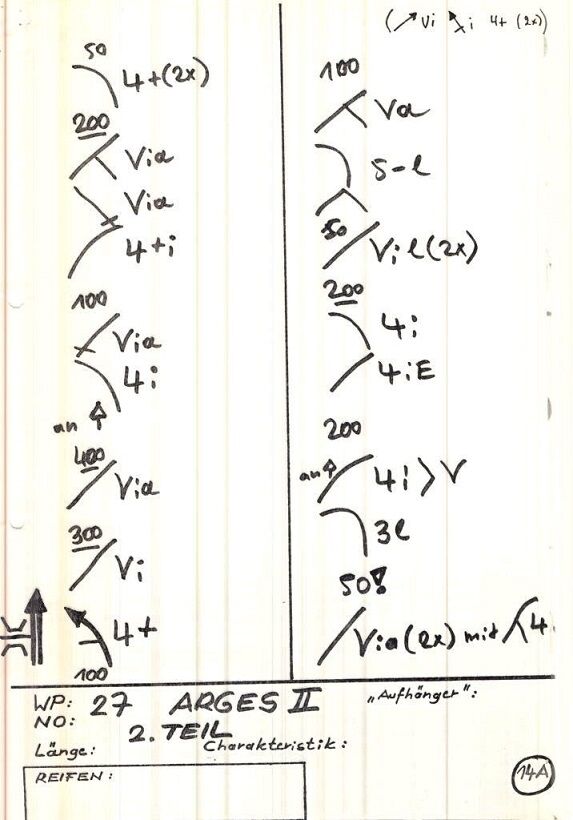 ( Vi i 4+ (2x))
50
4+(2x)
200
Via
Via
4+i
100
Via
4i
an
400
Via
300
Vi
4+
100
100
Va
5-l
50
Vil(2x)
200
4i
4iE
200
an
4i > V
3l
50!
Via(2x) mit 4
WP: 27 ARGES II
"Aufhänger":
NO: 2. TEIL
Länge: Charakteristik:
REIFEN:
14A